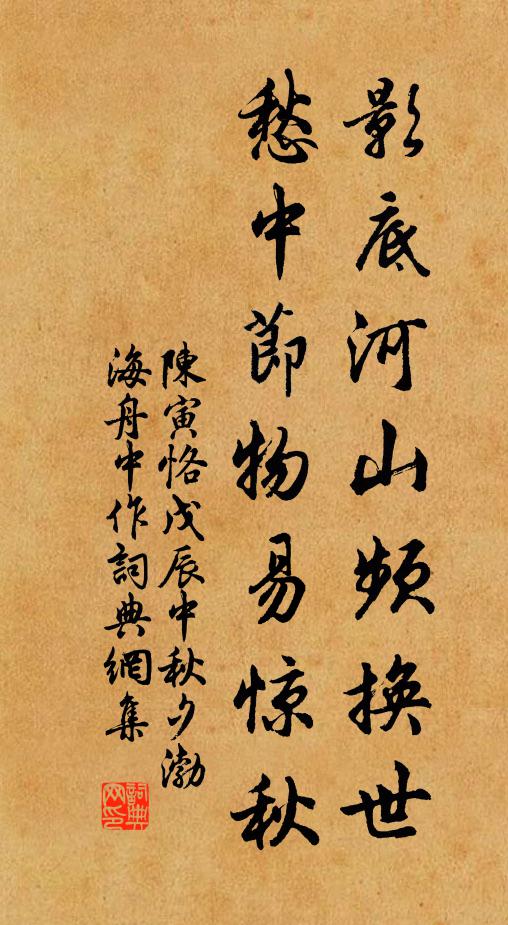 影底河山頻換世
愁中節物易惊秋
陳寅恪戊辰中秋夕渤
海舟中作詞典網集
詞典网印